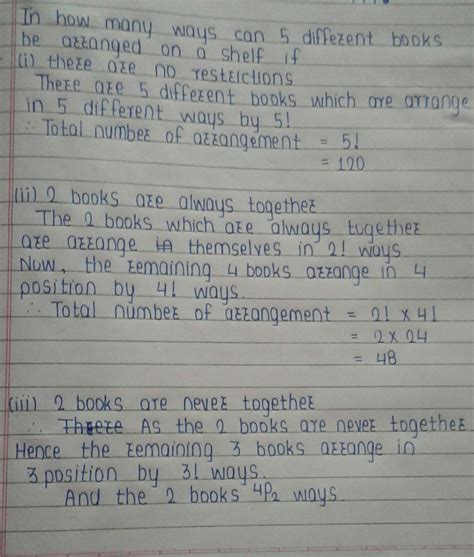 In how many ways can 5 different books
be arranged on a shelf if
(i) there are no restrictions
There are 5 different books which are arrange
in 5 different ways by 5!
∴ Total number of arrangement = 5!
= 120
(ii) 2 books are always together
The 2 books which are always together
are arrange in themselves in 2! ways.
Now, the remaining 4 books arrange in 4
position by 4! ways.
∴ Total number of arrangement = 2! × 4!
= 2 × 24
= 48
(iii) 2 books are never together
∴ There As the 2 books are never together
Hence the remaining 3 books arrange in
3 position by 3! ways.
And the 2 books 4P2 ways.